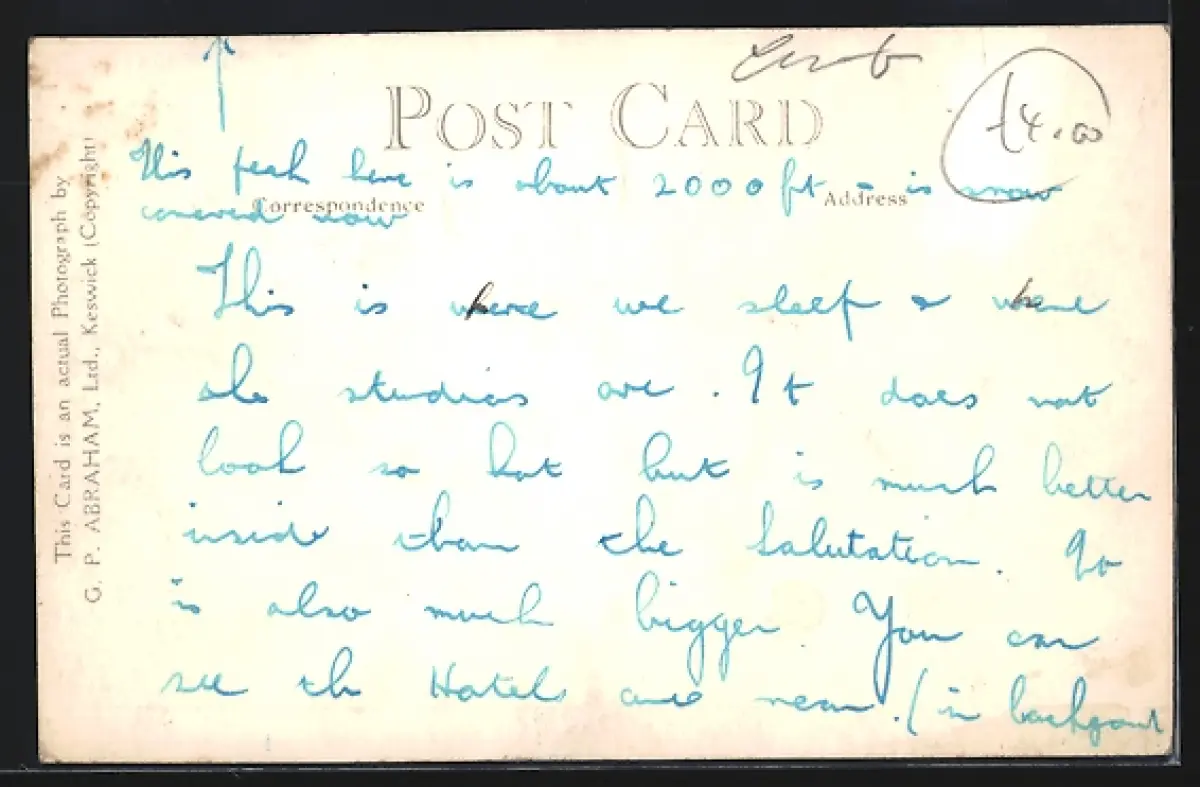 POST CARD
£4.00
This peak here is about 2000ft - is snow
Correspondence
Address
covered now
This is where we sleep & where
studios are. It does not
look so hot but is much better
inside than the Salutation. It
is also much bigger. You can
see the Hotels are near. (in
This Card is an actual Photograph by
G. P. ABRAHAM, Ltd., Keswick (Copyright)